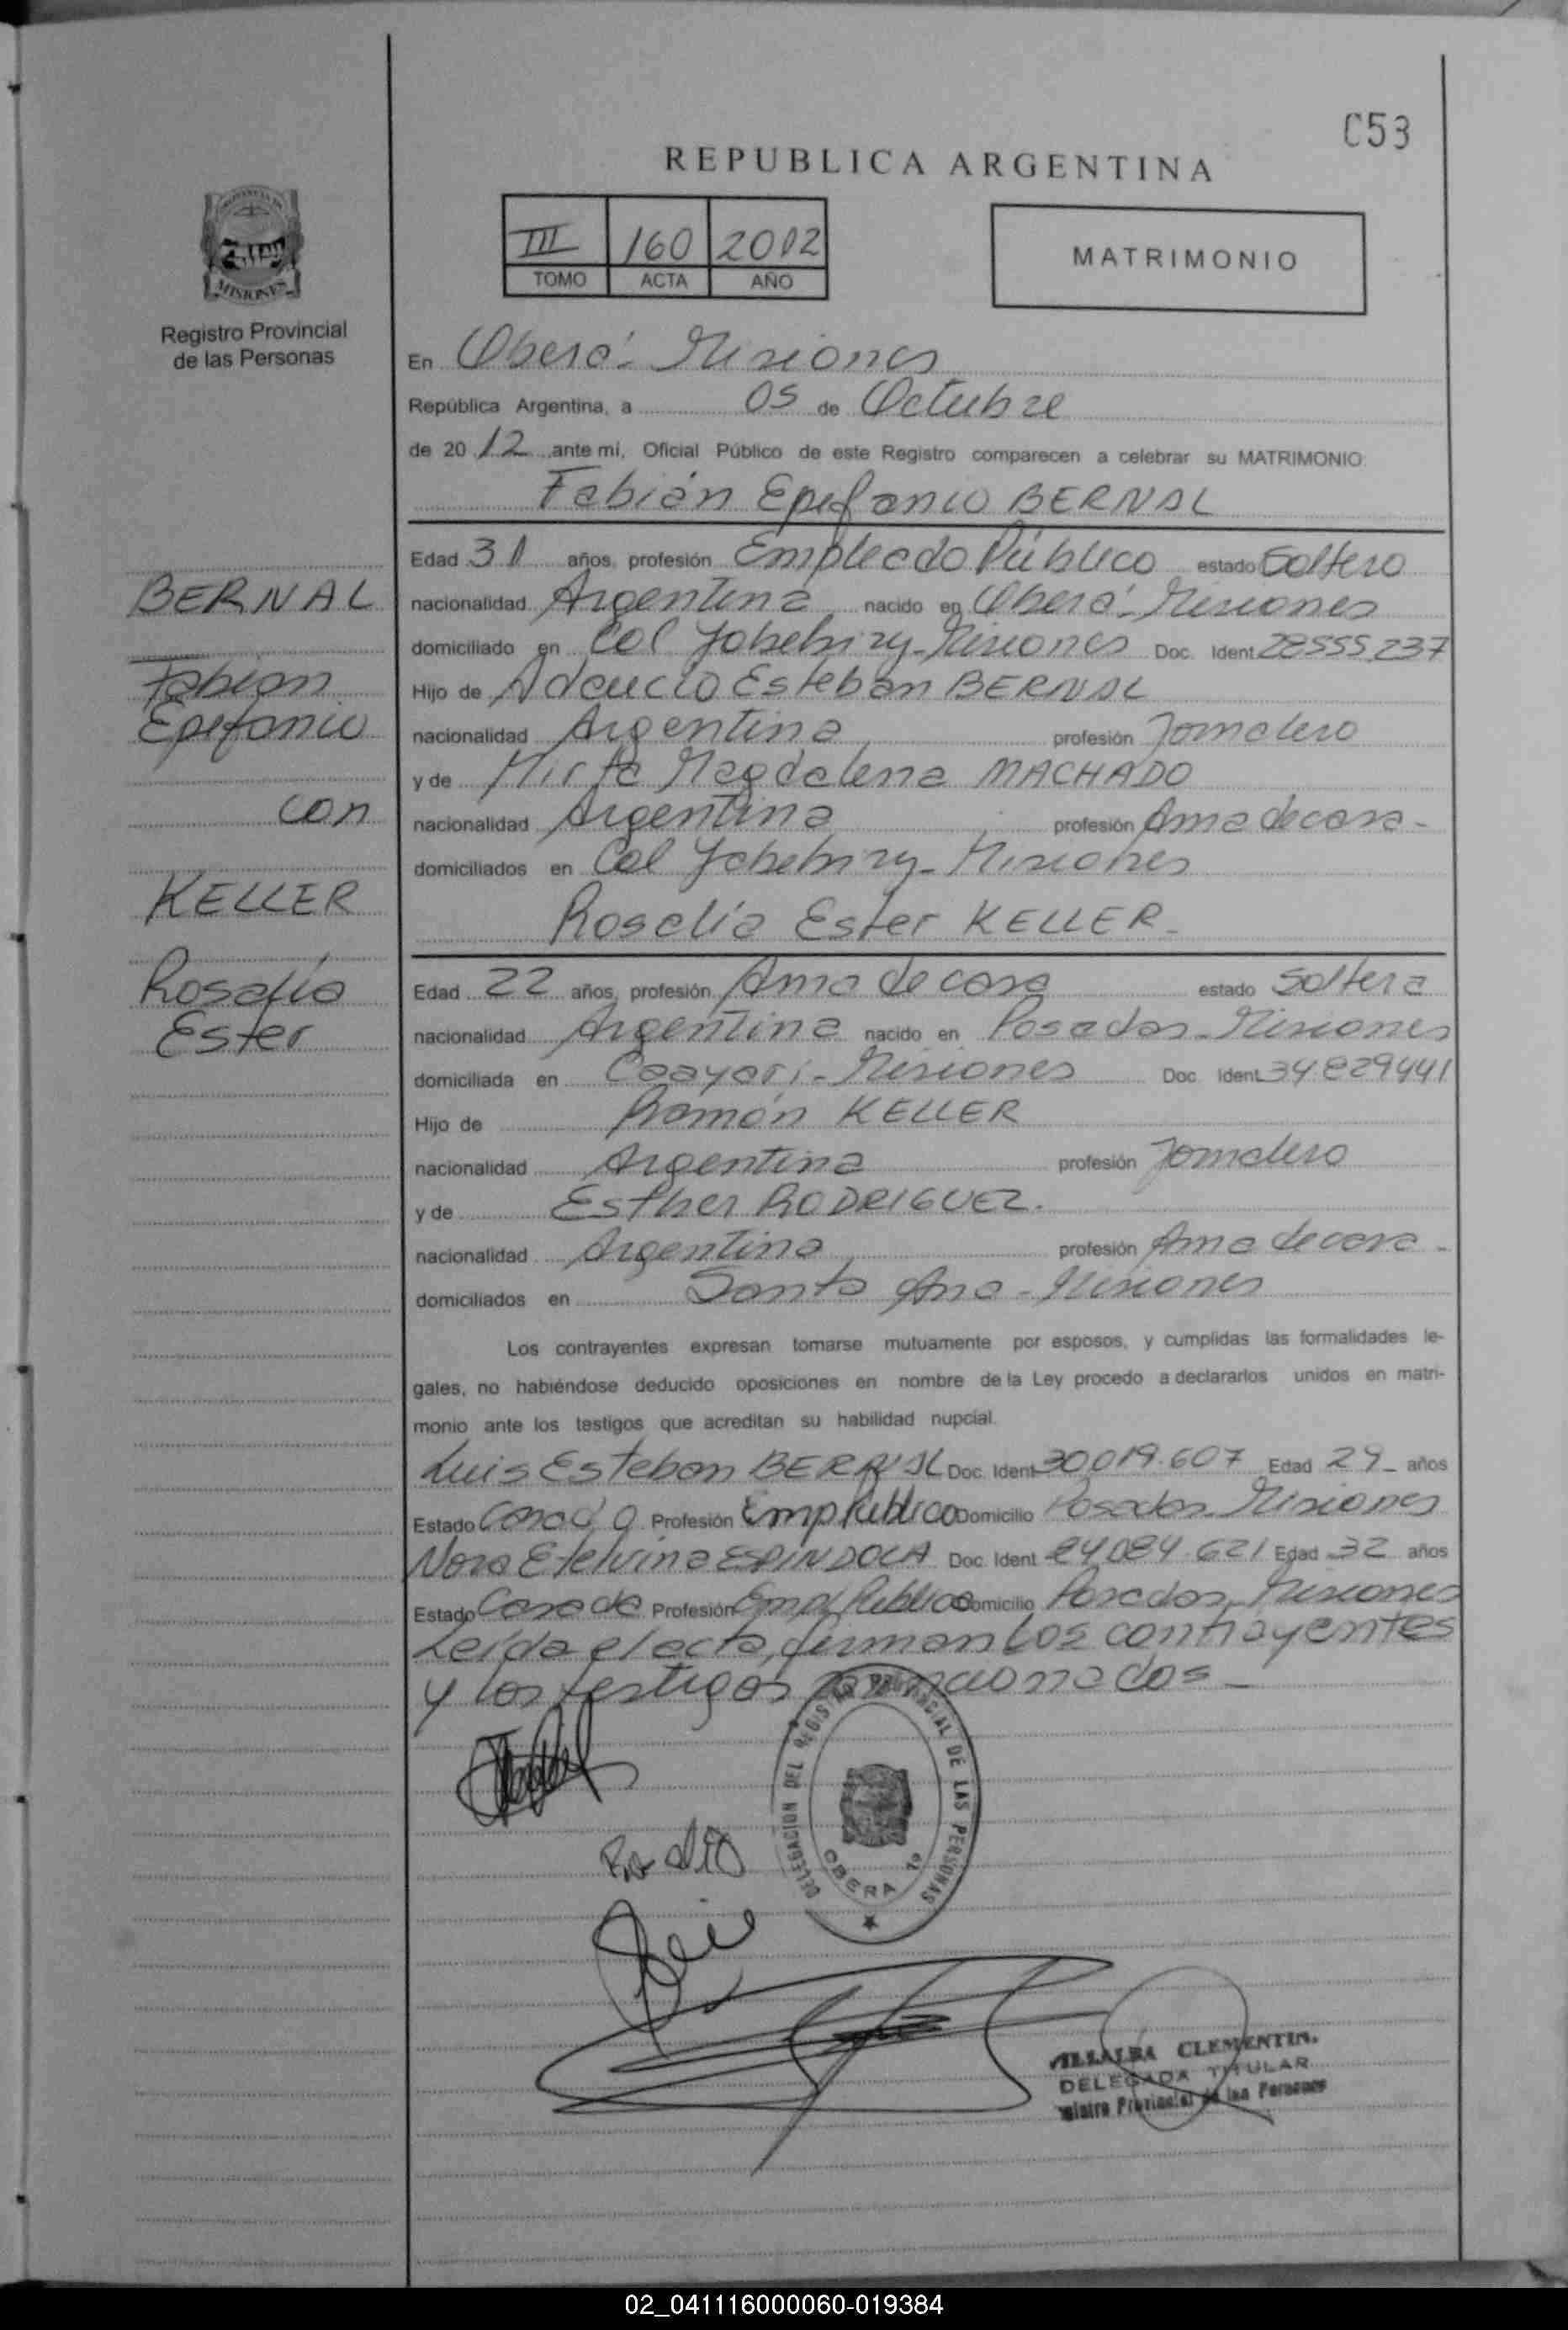 C53
REPUBLICA ARGENTINA
III 160 2012
TOMO ACTA AÑO
MATRIMONIO
MISIONES
Registro Provincial
de las Personas
En Oberá - Misiones
República Argentina, a 05 de Octubre
de 20 12 ante mi, Oficial Público de este Registro comparecen a celebrar su MATRIMONIO:
Fabián Epefanio BERNAL
Edad 31 años, profesión Empleado Público estado Soltero
BERNAL
nacionalidad Argentina nacido en Oberá - Misiones
domiciliado en Col Yabebiry - Misiones Doc. Ident. 28555.237
Fabián
Hijo de Adaucto Esteban BERNAL
Epefanio
nacionalidad Argentina profesión Jornalero
y de Mirta Magdalena MACHADO
con
nacionalidad Argentina profesión Ama de casa -
domiciliados en Col Yabebiry - Misiones
KELLER
Rosalía Ester KELLER -
Rosalía
Edad 22 años, profesión Ama de casa estado Soltera
Ester
nacionalidad Argentina nacido en Posadas - Misiones
domiciliada en Caayarí - Misiones Doc. Ident. 34.829441
Hijo de Ramón KELLER
nacionalidad Argentina profesión Jornalero
y de Esther RODRIGUEZ.
nacionalidad Argentina profesión Ama de casa -
domiciliados en Santa Ana - Misiones
Los contrayentes expresan tomarse mutuamente por esposos, y cumplidas las formalidades le-
gales, no habiéndose deducido oposiciones en nombre de la Ley procedo a declararlos unidos en matri-
monio ante los testigos que acreditan su habilidad nupcial.
Luis Esteban BERNAL Doc. Ident. 30019.607 Edad 29 - años
Estado Casado Profesión Emp Público Domicilio Posadas - Misiones
Nora Etelvina ESPINDOLA Doc. Ident. 24084.621 Edad 32 años
Estado Casada Profesión Emp Público Domicilio Posadas - Misiones
Leída el acta, firman los contrayentes
y los testigos mencionados -
DELEGACION DEL REGISTRO PROVINCIAL DE LAS PERSONAS
OBERA
VILLALBA CLEMENTIN.
DELEGADA TITULAR
Provincial de las Personas
02_041116000060-019384